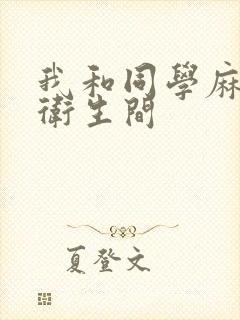 我和同學麻
衛生間
夏登文